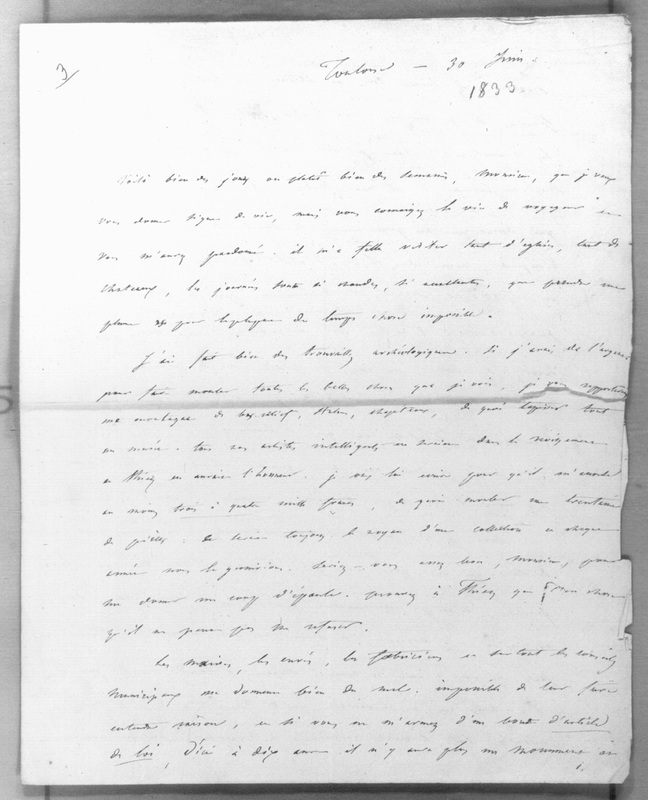 3
Toulouse — 30 Juin.
1833
Voilà bien des jours ou plutôt bien des semaines, Monsieur, que je veux
vous donner signe de vie, mais vous connaissez la vie de voyageur et
vous m'aurez pardonné. il m'a fallu visiter tant d'églises, tant de
châteaux, les journées sont si chaudes, si accablantes, que prendre une
plume est pour la plupart du temps chose impossible.
J'ai fait bien des trouvailles archéologiques. Si j'avais de l'argent
pour faire mouler toutes les belles choses que je vois, je vous rapporterais
une montagne de bas-reliefs, statues, chapiteaux, de quoi tapisser tout
un musée. tous nos artistes intelligents en seraient dans le ravissement
et Thiers en aurait l'honneur. je vais lui écrire pour qu'il m'accorde
au moins trois à quatre mille francs, de quoi mouler une trentaine
de pièces. ce serait toujours le noyau d'une collection et chaque
année nous la grossirions. Seriez-vous assez bon, Monsieur, pour
me donner un coup d'épaule. prouvez à Thiers que c'est une chose
qu'il ne peut pas me refuser.
Les maires, les curés, les fabriciens et surtout les conseils
municipaux me donnent bien du mal. impossible de leur faire
entendre raison, et si vous ne m'armez d'un bout d'article
de loi, d'ici à dix ans il n'y aura plus un monument en